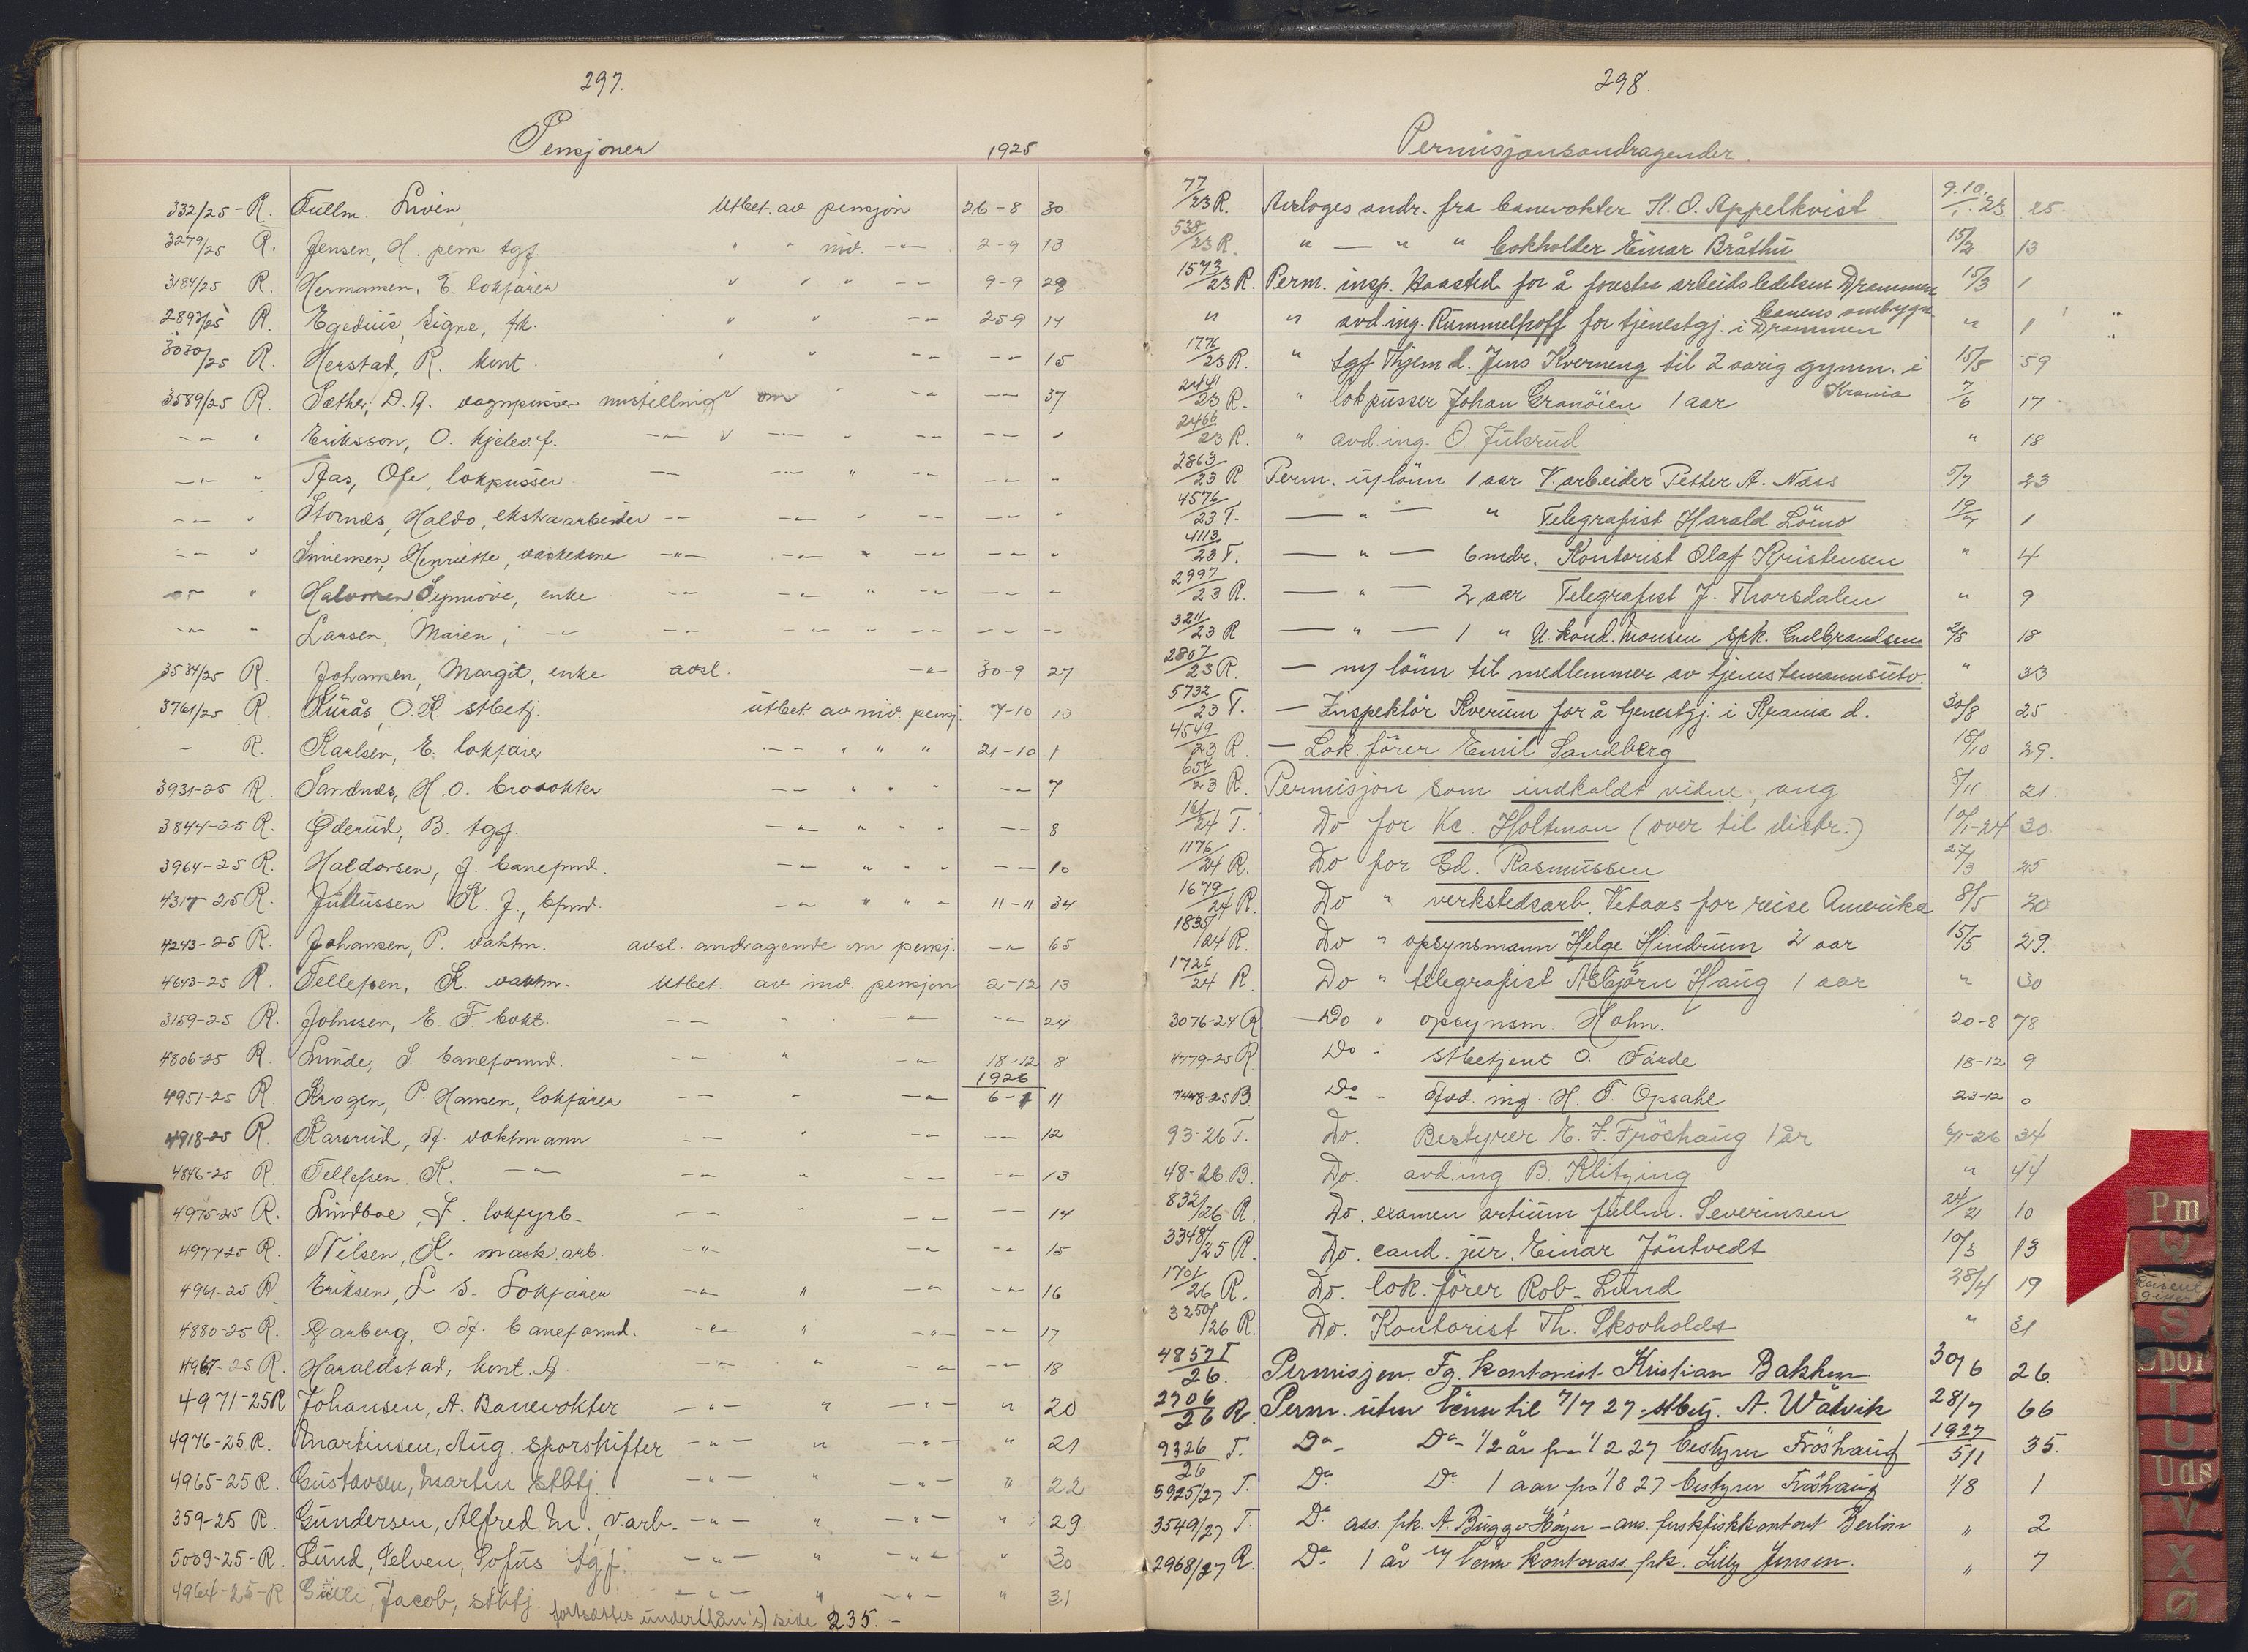 297.
Pensjoner 1925
332/25 - R. Fullm. Livèn Utbet. av pensjon 26-8 30
3279/25 R. Jensen, H. pens tgf. " " ind. -"- 2-9 13
3184/25 R. Hermansen, E. lokfører " " " -"- 9-9 29
2893/25 R. Egedius, Signe, frk. " " -"- 25-9 14
3030/25 R. Herstad, R. kont. " " -"- -"- 15
3589/25 R. Sæther, D. A. vognpusser innstilling " om " -"- -"- 37
-"- " Eriksson, O. kjelev.f. -"- " -"- " -"- -"- "
-"- " Aas, Ole, lokpusser -"- -"- " -"- -"- "
-"- " Stornes, Haldo, ekstraarbeider -"- -"- " -"- -"- "
-"- " Simensen, Henriette, vaskekone -"- -"- " -"- -"- "
-"- " Halvorsen Synnøve, enke -"- -"- " -"- -"- "
-"- " Larsen, Maren, -"- -"- -"- " -"- -"- -"-
3534/25 R. Johansen, Margit, enke avsl. -"- 30-9 27
3761/25 R. Kurås, O. K. stbetj. utbet. av ind. pensj. 7-10 13
- R. Karlsen, E. lokfører -"- " " " 21-10 1
3931-25 R. Sandnes, H. O. brovokter -"- " " " -"- 7
3844-25 R. Øderud, B. tgf. -"- " " " -"- 8
3964-25 R. Haldorsen, J. baneformd. -"- " " " -"- 10
4317-25 R. Juliussen K. J., bfmd. -"- " " " 11-11 34
4243-25 R. Johansen, P. vaktm. avsl. andragende om pensj. -"- 65
4643-25 R. Tellefsen, K. vaktm. Utbet. av ind. pensjon 2-12 13
3159-25 R. Johnsen, E. F. bokt. -"- " -"- -"- 24
4806-25 R. Lunde, S. baneformd. -"- " -"- 18-12 8
1926
4951-25 R. Krogen, P. Hansen, lokfører -"- " -"- 6-1 11
4918-25 R. Karsrud, A. vaktmann -"- " -"- -"- 12
4846-25 R. Tellefsen, K. -"- -"- " -"- -"- 13
4975-25 R. Lindboe, J. lokfyrb. -"- " -"- -"- 14
4977-25 R. Nilsen, K. mask.arb. -"- -"- -"- 15
4961-25 R. Eriksen, L. S. Lokfører -"- " -"- -"- 16
4880-25 R. Garberg, O. A. baneformd. -"- " -"- -"- 17
4967-25 R. Haraldstad, kont. A. -"- " -"- -"- 18
4971-25 R Johansen, A. Banevokter -"- " -"- " 20
4976-25 R. Martinsen, Aug. sporskifter -"- " -"- " 21
4965-25 R. Gustavsen, Martin stbtj. -"- " -"- " 22
359-25 R. Gundersen, Alfred M. varb. -"- " -"- " 29
5009-25-R. Lund, Selven, Sofus tgf. -"- " -"- " 30
4964-25-R Gulli, Jacob, stbtj. -"- " -"- " 31
fortsættes under (Lån's) side 235.-
298.
Permisjonsandragender.
77/23 R. Avloges andr. fra banevokter K. O. Appelkvist 9.10./1.-23 25.
538/23 R. " — " " bokholder Einar Bråthu 15/2 13
1573/23 R. Perm. insp. Haasted for å forestaa arbeidsledelsen Drammen 15/3 1
banens ombygn.
" " avd.ing. Rummelhoff for tjenestgj. i Drammen " 1
1776/23 R. " tgf Thjem d. Jens Kverneng til 2 aarig gymn. i 15/5 59
Krania
2441/23 R. " lokpusser Johan Granöien 1 aar 7/6 17
2466/23 R. " avd.ing. O. Julsrud " 18
2863/23 R. Perm. u/lönn 1 aar V.arbeider Petter A. Næss 5/7 23
4576/23 T. — " — " Telegrafist Harald Lömo 19/7 1
4113/23 T. — " — 6 mdr. Kontorist Olaf Kristensen " 4
2997/23 R. — " — 2 aar Telegrafist J. Thorsdalen " 9
3211/23 R — " — 1 " U. kond. Monsen Spk. Gulbrandsen 2/8 18
2807/23 R. — m/ lönn til medlemmer av tjenestemannsutv. " 33
5732/23 T. — Inspektör Kverum for å tjenestgj. i Krania d. 30/8 25
4549/23 R — Lok.förer Emil Sandberg 18/10 29.
654/23 R. Permisjon som indkaldt vidne, ang 8/11 21.
161/24 T. Do for Kc. Holtmon (over til distr.) 10/1-24 30
1176/24 R. Do for Ed. Rasmussen 27/3 25
1679/24 R. Do " verkstedsarb. Vetaas for reise Amerika 8/5 30
1835/24 R. Do " opsynsmann Helge Hindrum 2 aar 15/5 29.
1726/24 R. Do " telegrafist Asbjörn Haug 1 aar " 30
3076-24 R — Do " opsynsm. Hohn. 20-8 78
4779-25 R Do - stbetjent O. Førde 18-12 9
7448-25 B Do - Avd. ing. H. T. Opsahl 23-12 0
93-26 T. Do. Bestyrer E. J. Fröshaug 1 år 6/1-26 34
48-26 B. Do. avd.ing B. Klitzing " 44
832/26 R. Do. examen artium fullm. Severinsen 24/2 10
3348/25 R. Do. cand. jur. Einar Jöntvedt 10/3 13
1701/26 R. Do. lok.förer Rob. Lund 28/4 19
3250/26 R. Do. Kontorist Th. Skovholdt " 31
4857/26. T Permisjon. Fg. kontorist Kristian Bakken 30/6 26.
2706/26 R Perm. uten lönn til 7/7 27 - stbetj. A. Wåtvik 28/7 66
1927
9326/26 T. Do - Do - 1/2 år fra 1/2 27 bestyrer Fröshaug 5/1 35.
5925/27 T. Do Do 1 aar fra 1/8 27 bestyrer Fröshaug 1/8 1
3549/27 T. Do ass. frk. A. Bugge Höyer - ans. Berlin " 2
2968/27 R. Do 1 år u/ lönn kontorass. frk. Lilly Jensen. " 7
Pm
Q
S
Spor
T
U
Uds
V
X
Ø